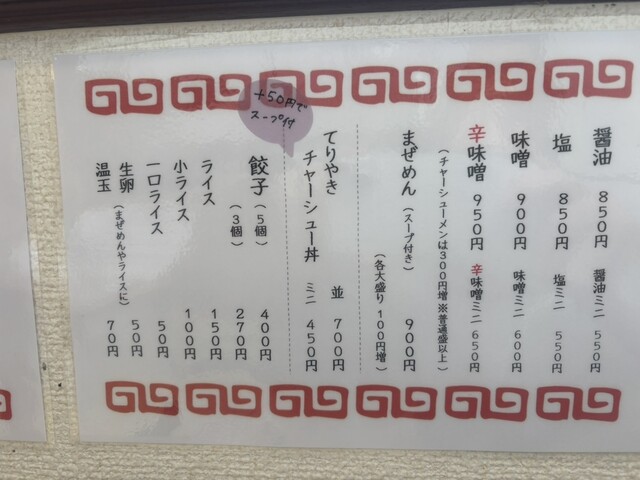 醤油 850円 醤油ミニ 550円
塩 850円 塩ミニ 550円
味噌 900円 味噌ミニ 600円
辛味噌 950円 辛味噌ミニ 650円
(チャーシューメンは300円増※普通盛以上)
まぜめん(スープ付き) 900円
(各大盛り100円増)
+50円で
スープ付
てりやき
チャーシュー丼
並 700円
ミニ 450円
餃子(5個) 400円
(3個) 270円
ライス 150円
小ライス 100円
一口ライス 50円
生卵(まぜめんやライスに) 50円
温玉 70円